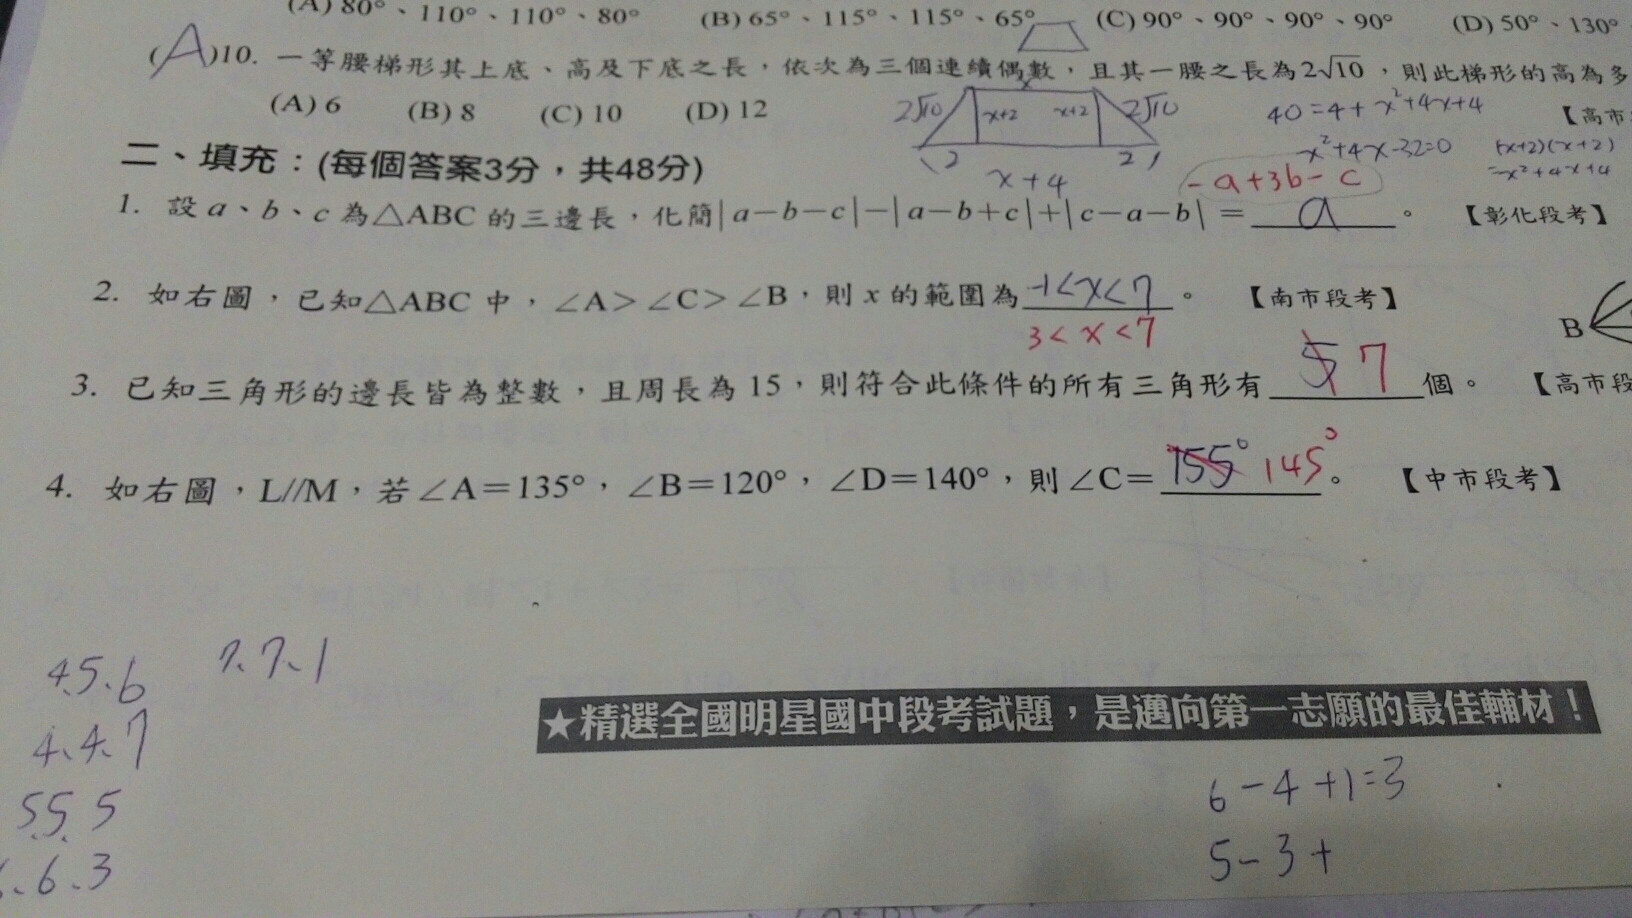 (A) 80°、110°、110°、80° (B) 65°、115°、115°、65° (C) 90°、90°、90°、90° (D) 50°、130°
(A)10. 一等腰梯形其上底、高及下底之長,依次為三個連續偶數,且其一腰之長為2√10,則此梯形的高為多
(A) 6 (B) 8 (C) 10 (D) 12 【高市
x
2√10 x+2 x+2 2√10
2 2
x+4
40=4+x²+4x+4
x²+4x-32=0
(x+2)(x+2)
=x²+4x+4
二、填充:(每個答案3分,共48分)
-a+3b-c
1. 設 a、b、c 為△ABC 的三邊長,化簡|a-b-c|-|a-b+c|+|c-a-b|= a 。 【彰化段考】
2. 如右圖,已知△ABC 中,∠A>∠C>∠B,則 x 的範圍為 -1<x<7 。 【南市段考】
3<x<7
B
3. 已知三角形的邊長皆為整數,且周長為 15,則符合此條件的所有三角形有 5 7 個。 【高市段
4. 如右圖,L//M,若∠A=135°,∠B=120°,∠D=140°,則∠C= 155° 145° 。 【中市段考】
4.5.6 7.7.1
4.4.7
5.5.5
6.3
★精選全國明星國中段考試題,是邁向第一志願的最佳輔材!
6-4+1=3
5-3+